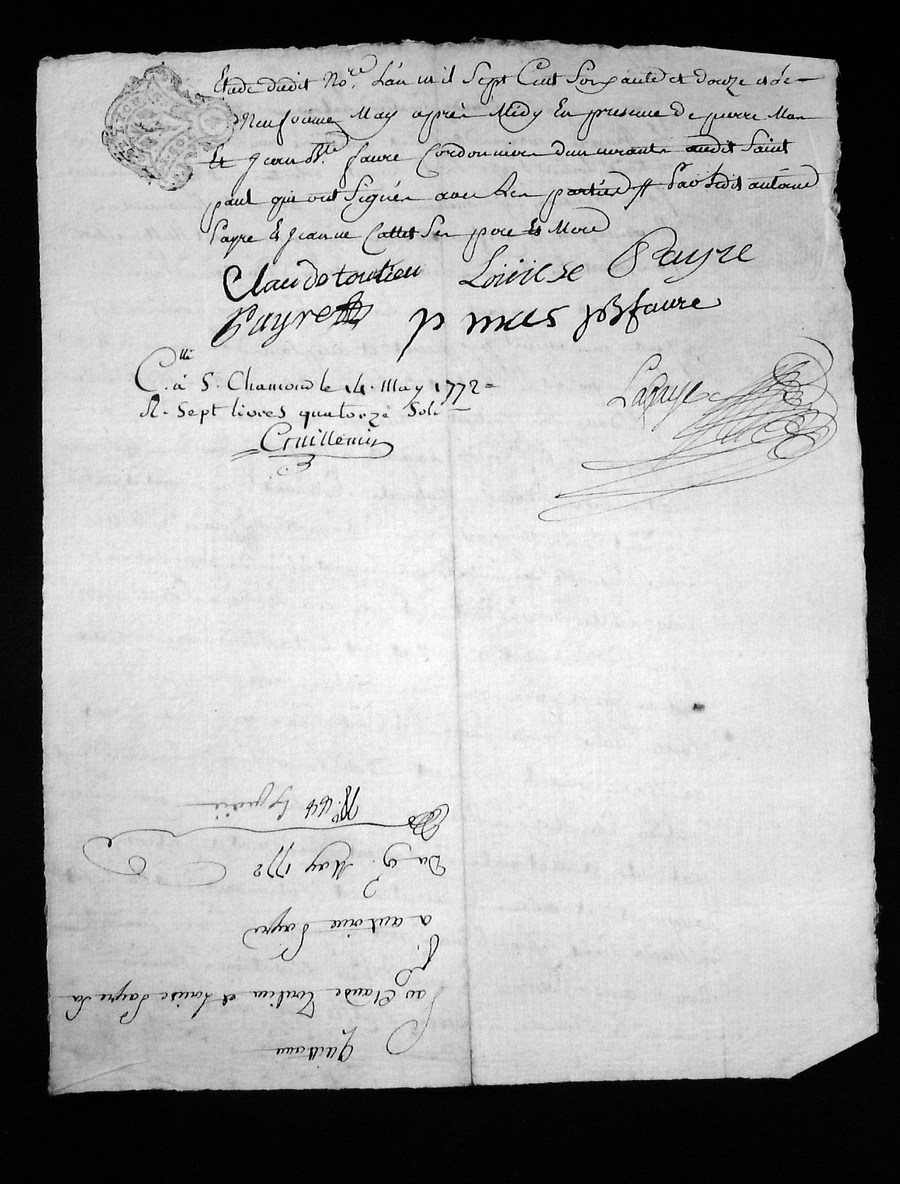 Etude dudit No.re L'an mil Sept Cent Soixante et douze et le
Neufvieme May après Midy En presence de pierre Mas
Et Jean Bte. faure Cordonnier demeurants audit Saint
paul qui ont Signés avec les parties // par ledit antoine
payre Et Jeanne Collet Ses pere Et Mere
Claude toulieu Louise Payre
Payre p mas JB faure
C.lle à S. Chamond le 14. May 1772
R. Sept livres quatorze Sols
Lagaye
Cruillemin
Quittance
par Claude Toulieu et Louise Payre sa
f.
a antoine Payre
Du 9. May 1772
No. 154